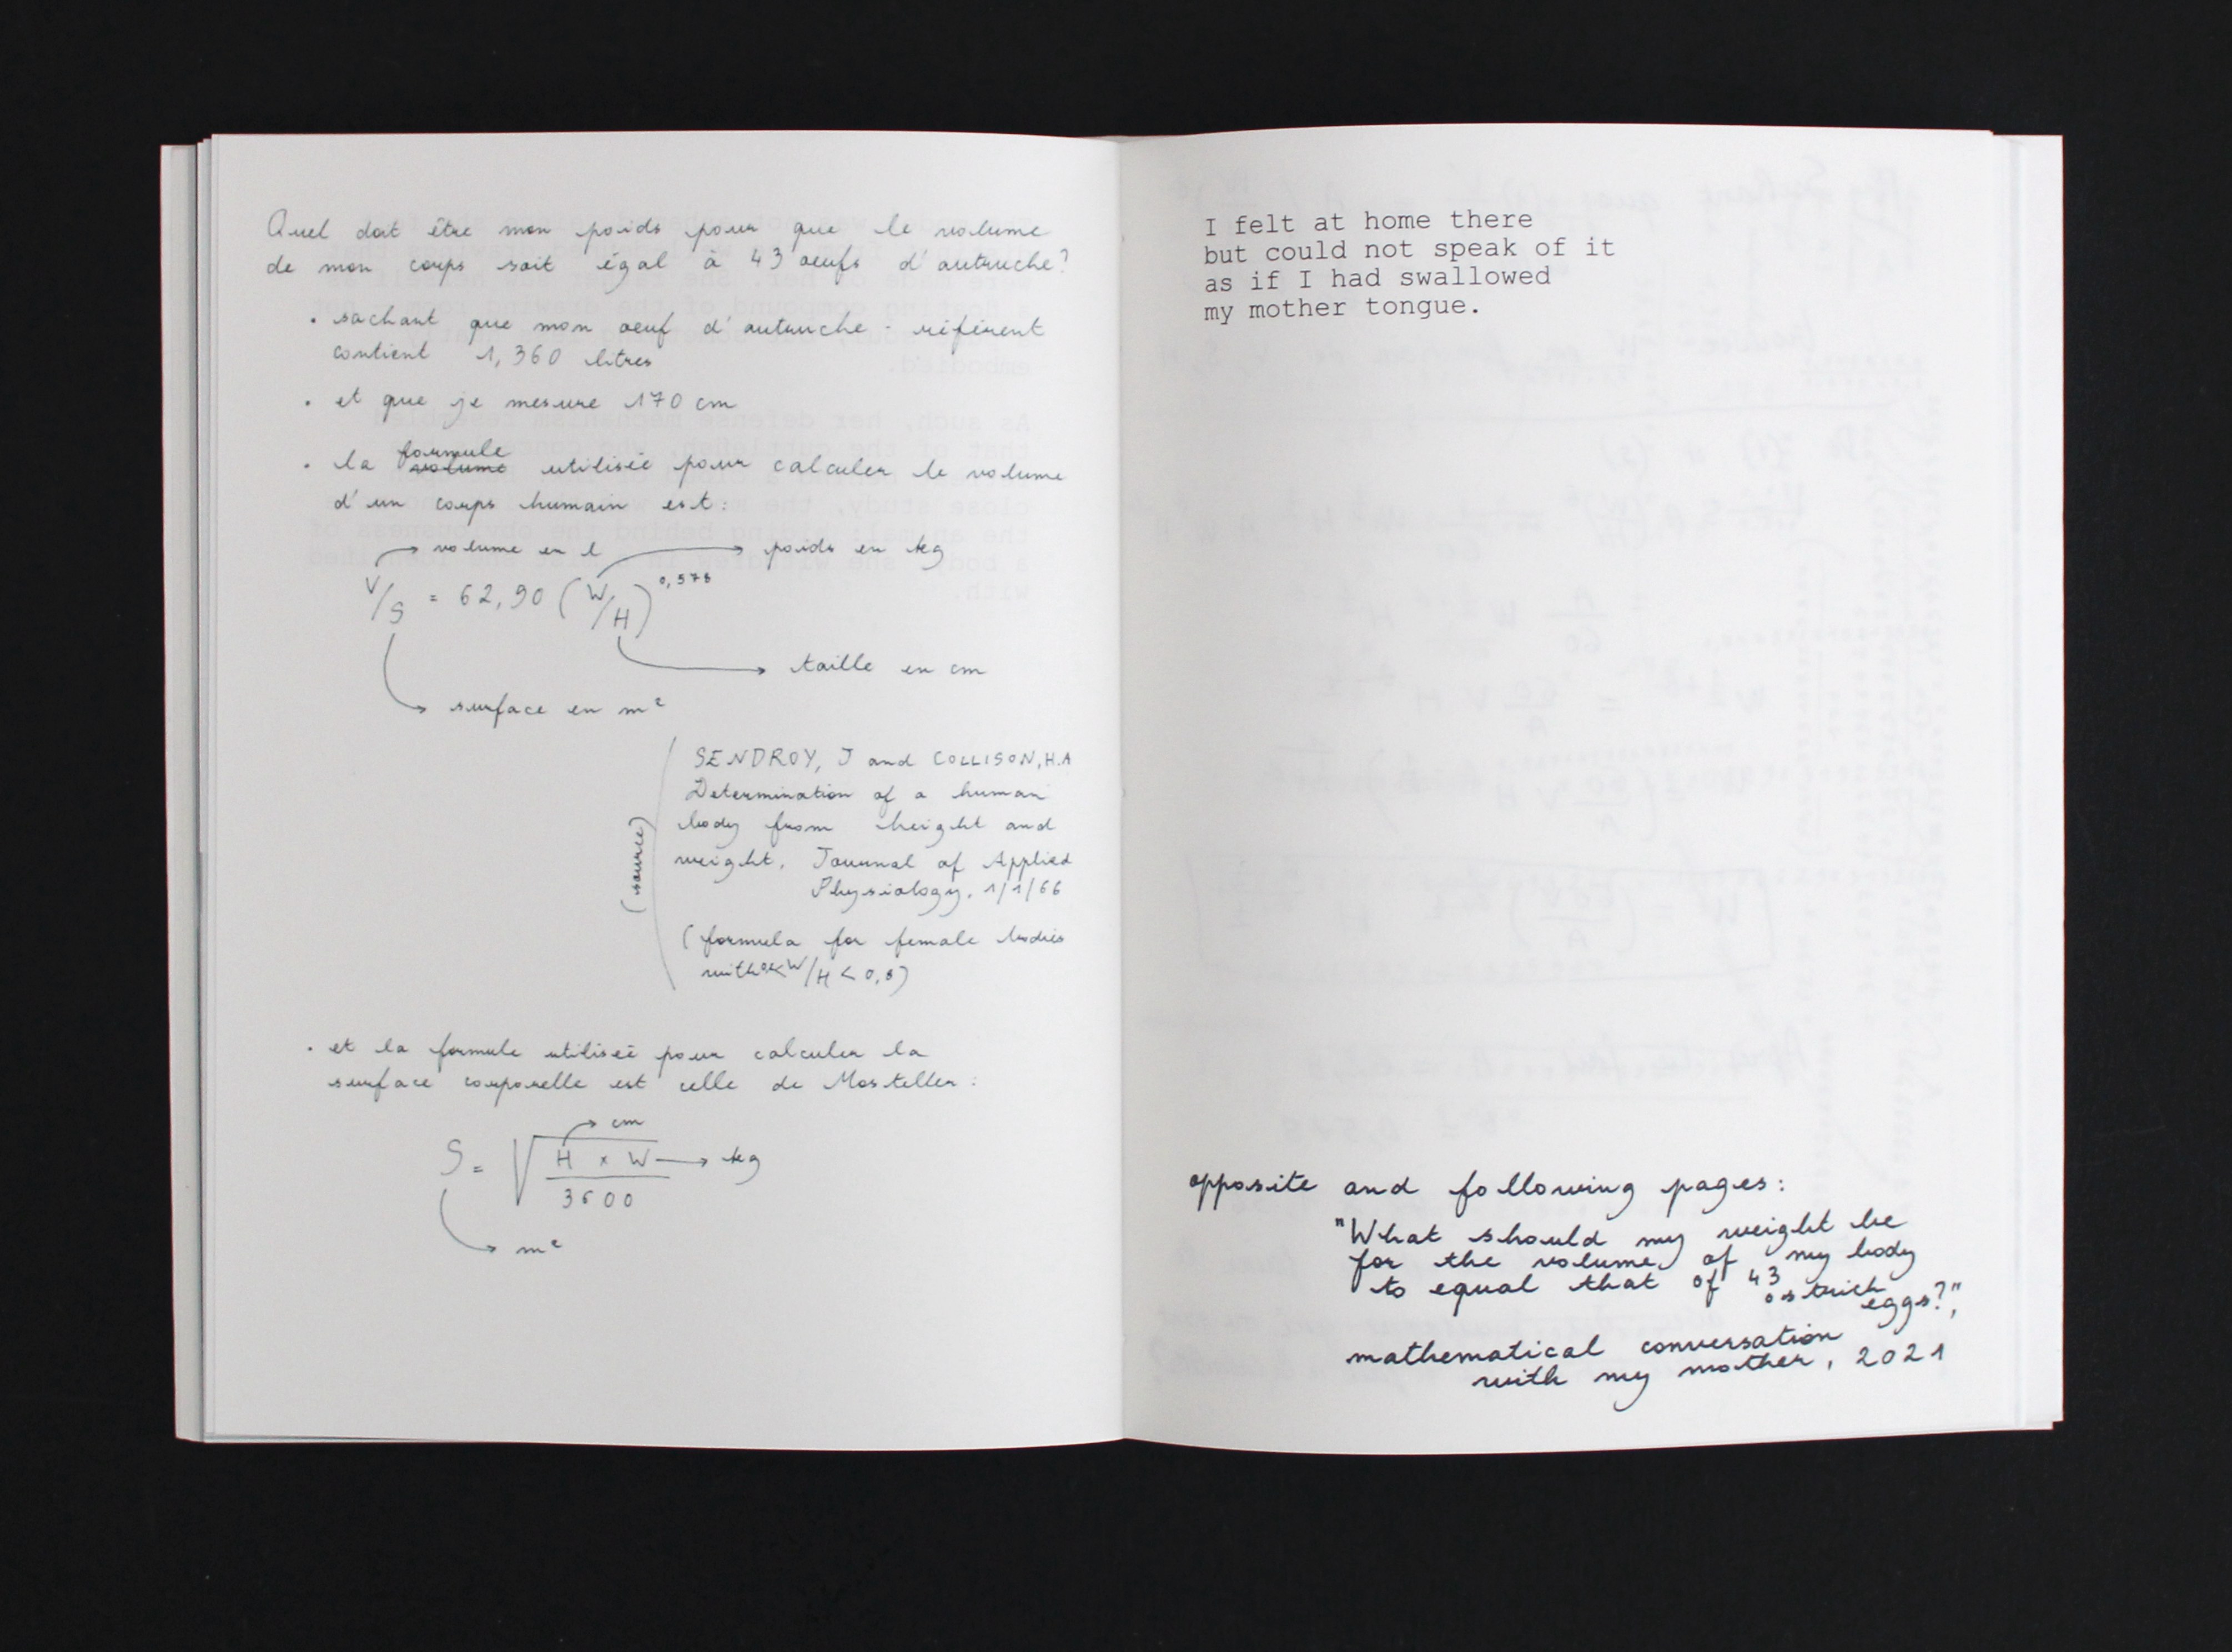 Quel doit être mon poids pour que le volume
de mon corps soit égal à 43 oeufs d'autruche?
• sachant que mon oeuf d'autruche - référent
contient 1,360 litres
• et que je mesure 170 cm
formule
• la volume utilisée pour calculer le volume
d'un corps humain est:
volume en l → poids en kg
V/S = 62,90 (W/H)^0,578
taille en cm
surface en m²
(source)
SENDROY, J and COLLISON, H.A
Determination of a human
body from height and
weight. Journal of Applied
Physiology. 1/1/66
(formula for female bodies
with W/H < 0,8)
• et la formule utilisée pour calculer la
surface corporelle est celle de Mosteller:
→ cm
S = √ H x W → kg
3600
→ m²
I felt at home there
but could not speak of it
as if I had swallowed
my mother tongue.
opposite and following pages:
"What should my weight be
for the volume of my body
to equal that of 43
ostrich
eggs?",
mathematical conversation
with my mother, 2021